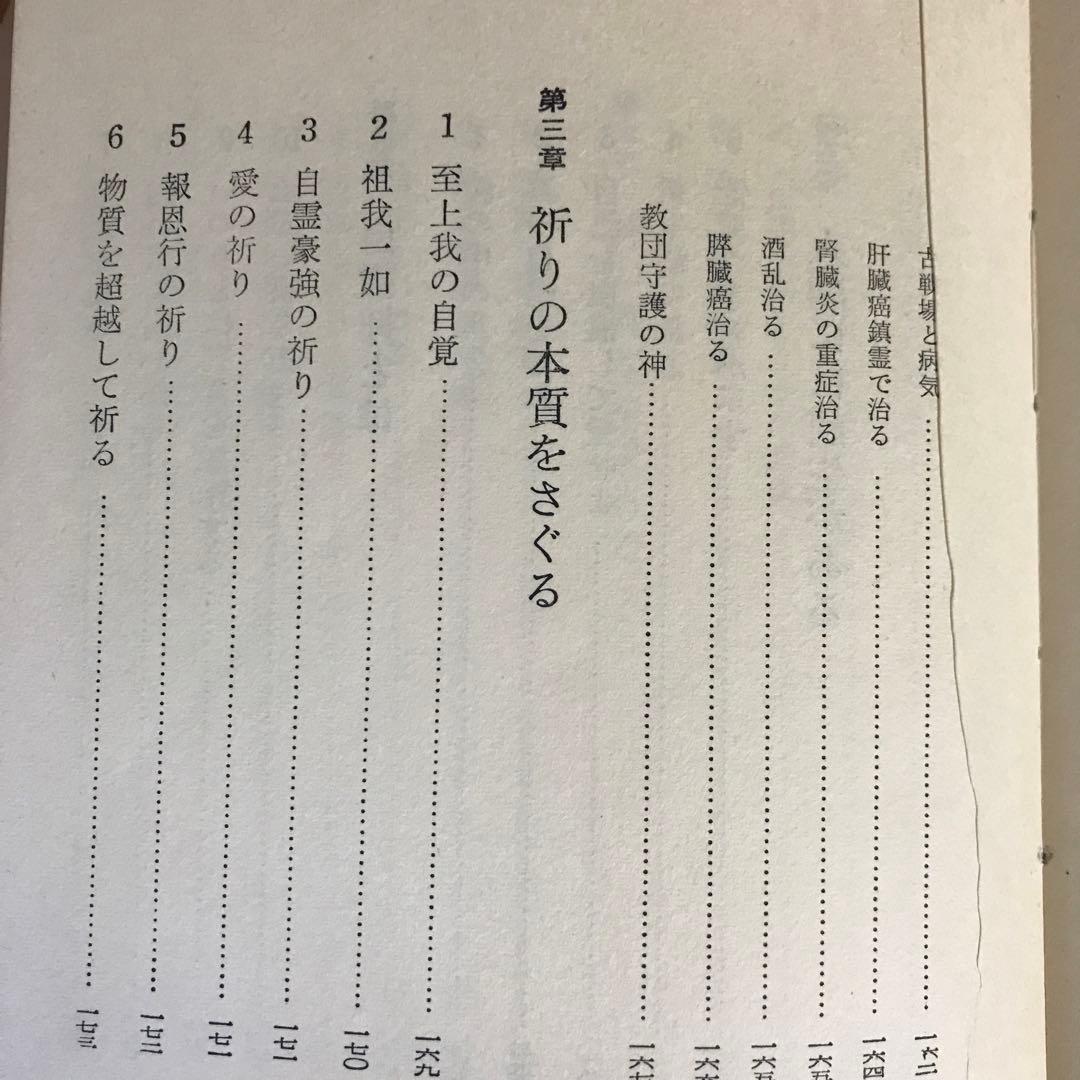 古戦場と病気……一六二
肝臓癌鎮霊で治る……一六四
腎臓炎の重症治る……一六五
酒乱治る……一六五
膵臓癌治る……一六六
教団守護の神……一六七
第三章 祈りの本質をさぐる
1 至上我の自覚……一六九
2 祖我一如……一七〇
3 自霊豪強の祈り……一七一
4 愛の祈り……一七一
5 報恩行の祈り……一七二
6 物質を超越して祈る……一七三